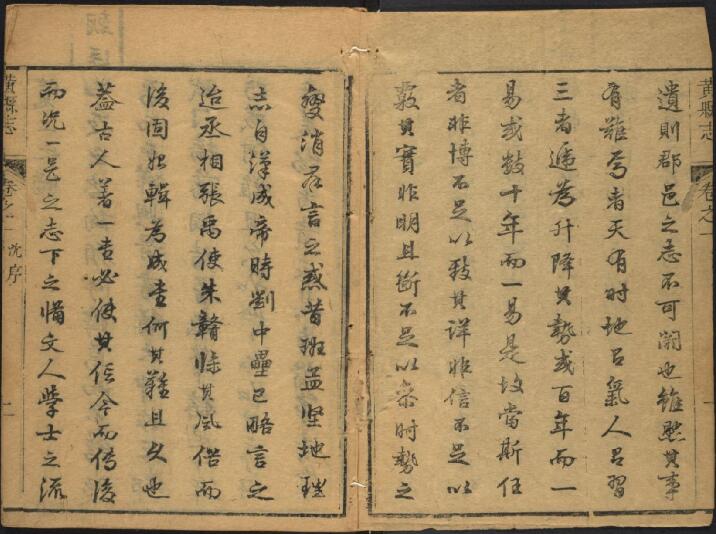 黃縣志
卷之一
一
遺則郡邑之志不可闕也雖然其事
有難焉者天有時地有氣人有習
三者遞為升降其勢或百年而一
易或數十年而一易是故當斯任
者非博不足以致其詳非信不足以
覈其實非明且斷不足以察時勢之
變消群言之惑昔班孟堅地理
志自漢成帝時劉中壘已略言之
迨丞相張禹使朱贛條其風俗而
後固始輯為成書何其難且久也
蓋古人著一書必使其信今而傳後
而況一邑之志下之備文人學士之流
黃縣志
卷之一
沈序
二